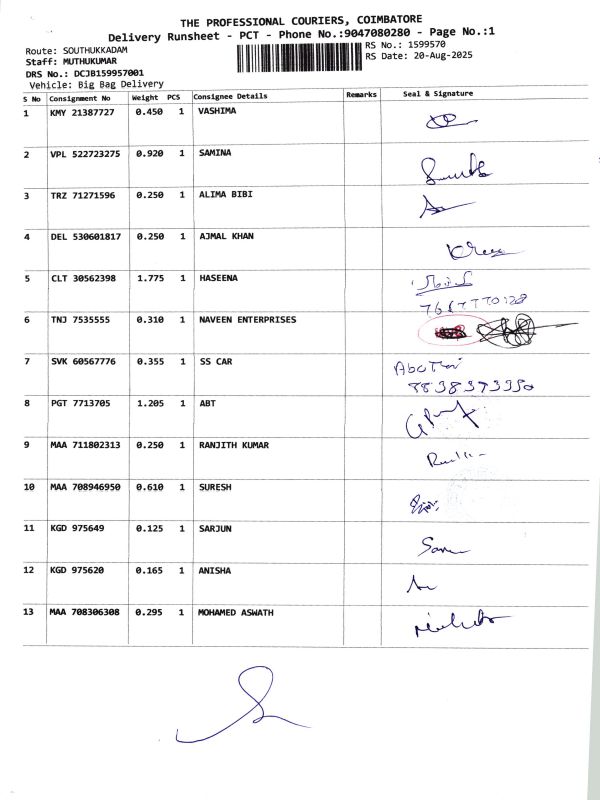 THE PROFESSIONAL COURIERS, COIMBATORE
Delivery Runsheet - PCT - Phone No.:9047080280 - Page No.:1
Route: SOUTHUKKADAM
RS No.: 1599570
Staff: MUTHUKUMAR
RS Date: 20-Aug-2025
DRS No.: DCJB159957001
Vehicle: Big Bag Delivery
S No Consignment No Weight PCS Consignee Details Remarks Seal & Signature
1 KMY 21387727 0.450 1 VASHIMA
2 VPL 522723275 0.920 1 SAMINA
3 TRZ 71271596 0.250 1 ALIMA BIBI
4 DEL 530601817 0.250 1 AJMAL KHAN
5 CLT 30562398 1.775 1 HASEENA
6 TNJ 7535555 0.310 1 NAVEEN ENTERPRISES
7 SVK 60567776 0.355 1 SS CAR
8838373350
8 PGT 7713705 1.205 1 ABT
9 MAA 711802313 0.250 1 RANJITH KUMAR
10 MAA 708946950 0.610 1 SURESH
11 KGD 975649 0.125 1 SARJUN
12 KGD 975620 0.165 1 ANISHA
13 MAA 708306308 0.295 1 MOHAMED ASWATH